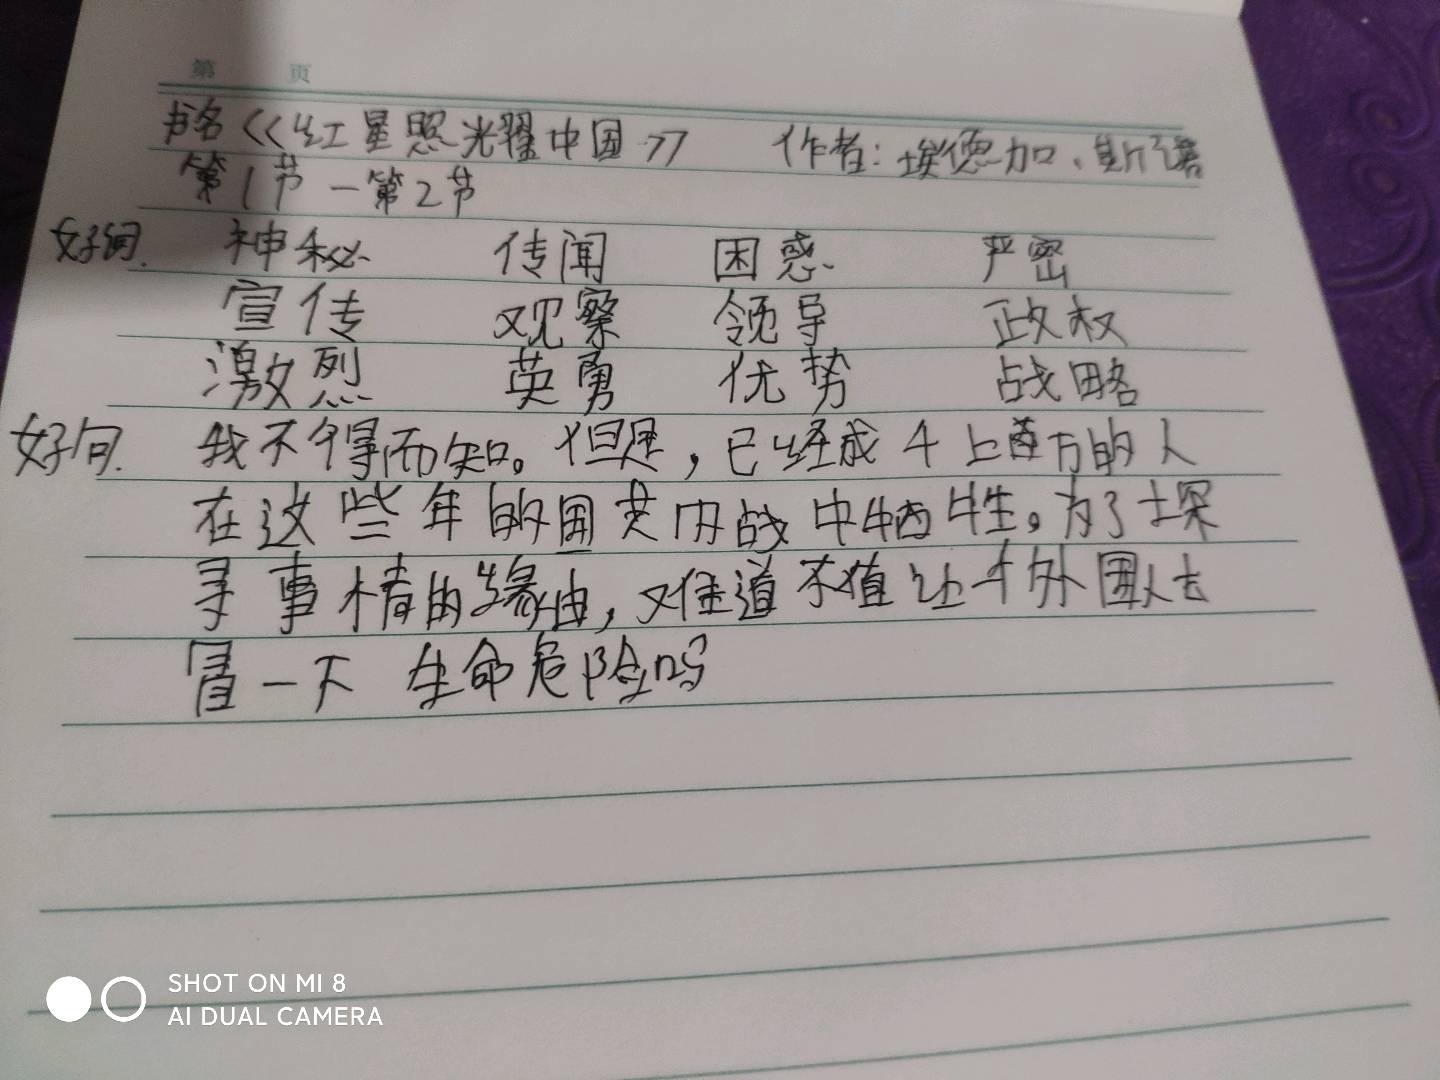 第 页
书名《红星照光耀中国》 作者:埃德加、斯诺
第1节－第2节
好词. 神秘 传闻 困惑 严密
宣传 观察 领导 政权
激烈 英勇 优势 战略
好句. 我不得而知。但是,已经成千上百万的人
在这些年的国共内战中牺牲。为了探
寻事情的缘由,难道不值让个外国人去
冒一下 生命危险吗
SHOT ON MI 8
AI DUAL CAMERA